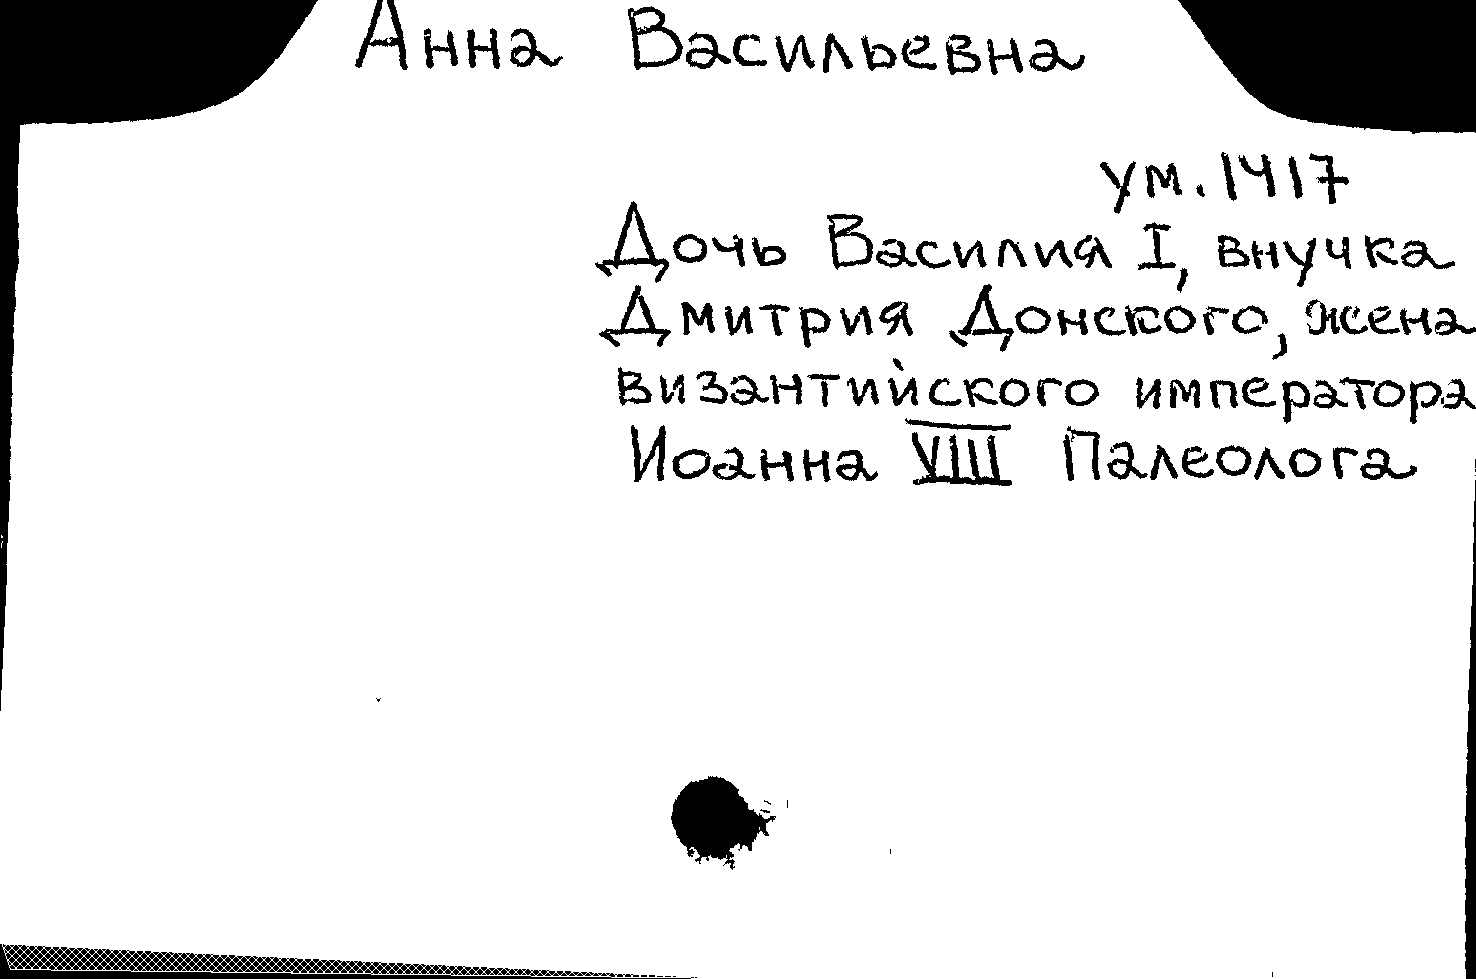 Анна Васильевна
ум. 1417
Дочь Василия I, внучка
Дмитрия Донского, жена
византийского императора
Иоанна VIII Палеолога